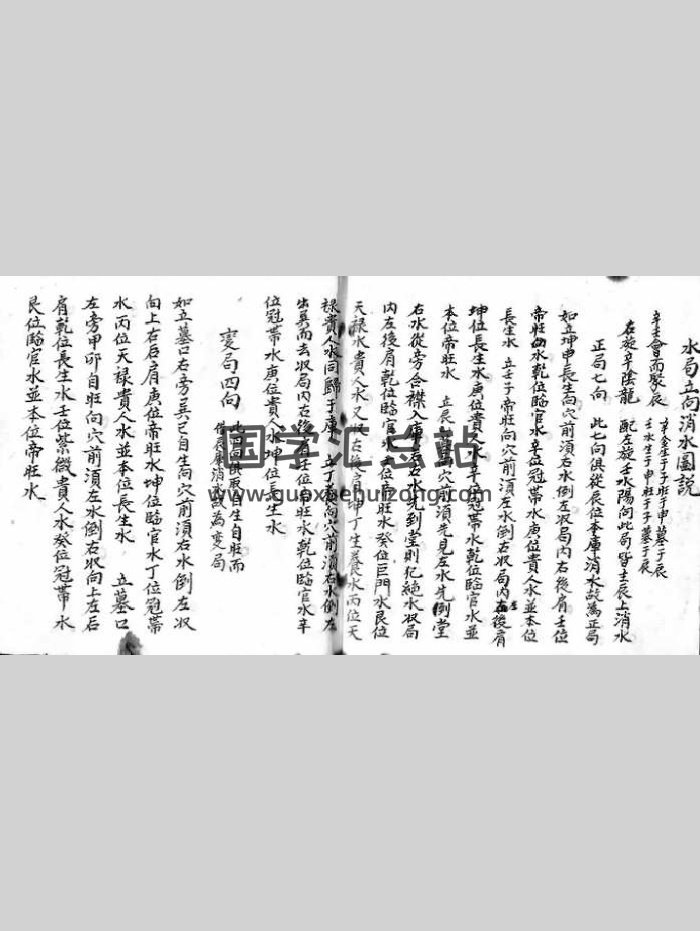 水局立向消水圖說
辛壬會而聚辰
辛金生于子旺于申墓于辰
壬水生于申旺于子墓于辰
右旋辛陰龍 配左旋壬水陽向此局皆主辰上消水
正局七向 此七向俱從辰位本庫消水故為正局
如立坤申長生向穴前須右水倒左収局內右後肩壬位
帝旺水乾位臨官水辛位冠帶水庚位貴人水並本位
長生水 立壬子帝旺向穴前須左水倒右収局內左後肩
坤位長生水庚位貴人水辛位冠帶水乾位臨官水並
本位帝旺水 立辰 向穴前須先見左水先倒堂
右水從旁合襟入庫若右水先到堂則犯絶水収局
內左後肩乾位臨官水壬位帝旺水癸位巨門水艮位
天祿水貴人水又収右後肩坤丁生養水丙位天
祿貴人水同歸于庫 立丁 養向穴前須右水倒左
出巽而去収局內右後肩壬位帝旺水乾位臨官水辛
位冠帶水庚位貴人水坤位長生水
變局四向
此四向俱取自生自旺而
借 庫消 故為變局
如立墓口右旁巽巳自生向穴前須右水倒左収
向上右后肩庚位帝旺水坤位臨官水丁位冠帶
水丙位天祿貴人水並本位長生水 立墓口
左旁甲卯自旺向穴前須左水倒右収向上左后
肩乾位長生水壬位紫微貴人水癸位冠帶水
艮位臨官水並本位帝旺水
国学汇总站
www.guoxuehuizong.com